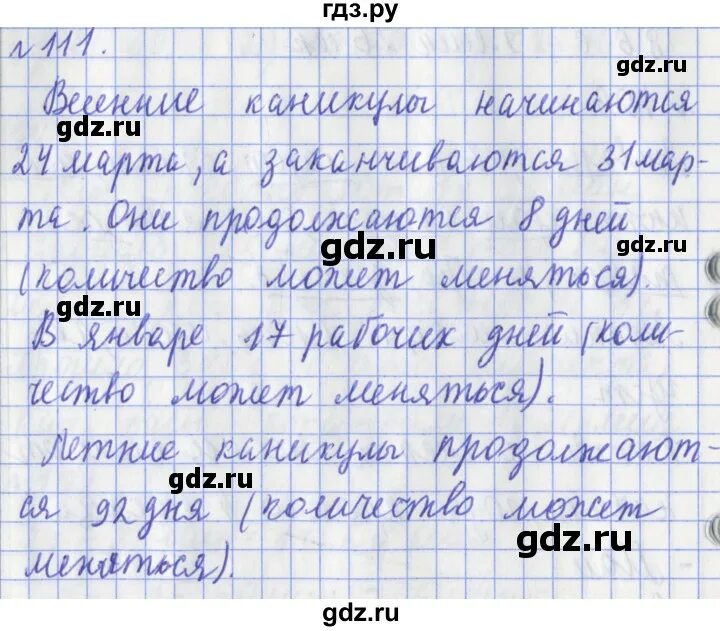 гдз.ру
№111.
gdz.ru
Весенние каникулы начинаются
gdz.ru
gdz.ru
24 марта, а заканчиваются 31 мар-
та. Они продолжаются 8 дней
gdz.ru
gdz.ru
(количество может меняться).
gdz.ru
В январе 17 рабочих дней (коли-
gdz.ru
чество может меняться).
Летние каникулы продолжают-
gdz.ru
ся 92 дня (количество может
gdz.ru
меняться).
gdz.ru